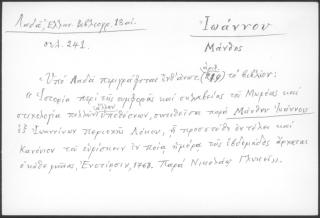 Λαδᾶ, Ἑλλην. Βιβλιογρ. 18 αἰ.
σελ. 241.
Ἰωάννου
Μάνθος
«Ὑπὸ Λαδᾶ περιγράφεται ἐνθ' ἀνωτ. (ἀριθ. ) τὸ βιβλίον:
«Ἱστορία περὶ τῆς συμφορᾶς καὶ σκλαβείας τοῦ Μωρέως καὶ
στιχολογία πολλῶν ἄλλων ὑποθέσεων, συντεθεῖσα παρὰ Μάνθου Ἰωάννου
ἐξ Ἰωαννίνων περιοχῆς Λάκου, ᾗ προσετέθη ἐν τέλει καὶ
Κανόνιον τοῦ εὑρίσκειν ἐν ποίᾳ ἡμέρᾳ τῆς ἑβδομάδος ἄρχεται
ὁ κάθε μῆνας. Ἐνετίησιν, 1768. Παρὰ Νικολάῳ Γλυκεῖ».